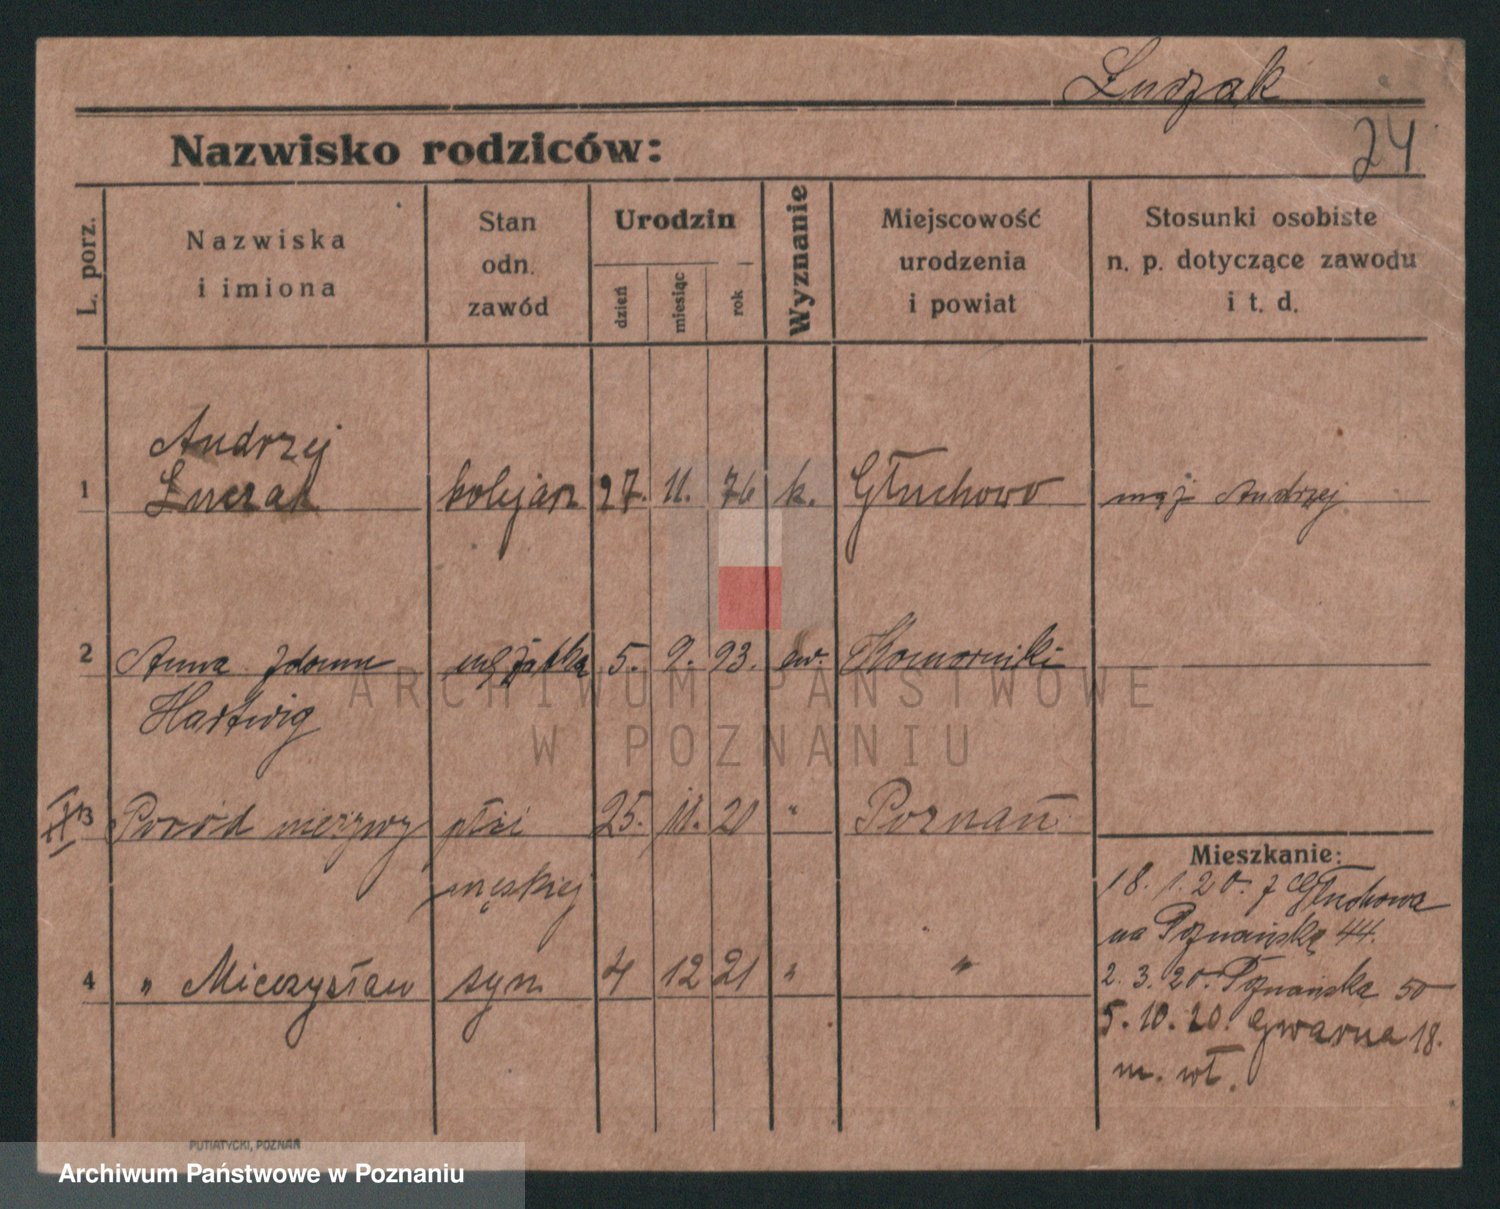 Łuczak
24
Nazwisko rodziców:
L. porz.
Nazwiska
i imiona
Stan
odn.
zawód
Urodzin
dzień
miesiąc
rok
Wyznanie
Miejscowość
urodzenia
i powiat
Stosunki osobiste
n. p. dotyczące zawodu
i t. d.
Andrzej
1 Łuczak kolejarz 27. 11. 76 k. Głuchowo mąż Andrzej
2 Anna z domu mężatka 5. 9. 93. ew. Komorniki
Hartwig
3 Poród nieżywy płci 25. 11. 20 " Poznań
męskiej
4 " Mieczysław syn 4 12 21 " "
Mieszkanie:
18. 1. 20. z Głuchowa
na Poznańską 44.
2. 3. 20. Poznańska 50
5. 10. 20. Gwarna 18.
m. wł.
PUTIATYCKI, POZNAŃ
ARCHIWUM PAŃSTWOWE
W POZNANIU
Archiwum Państwowe w Poznaniu